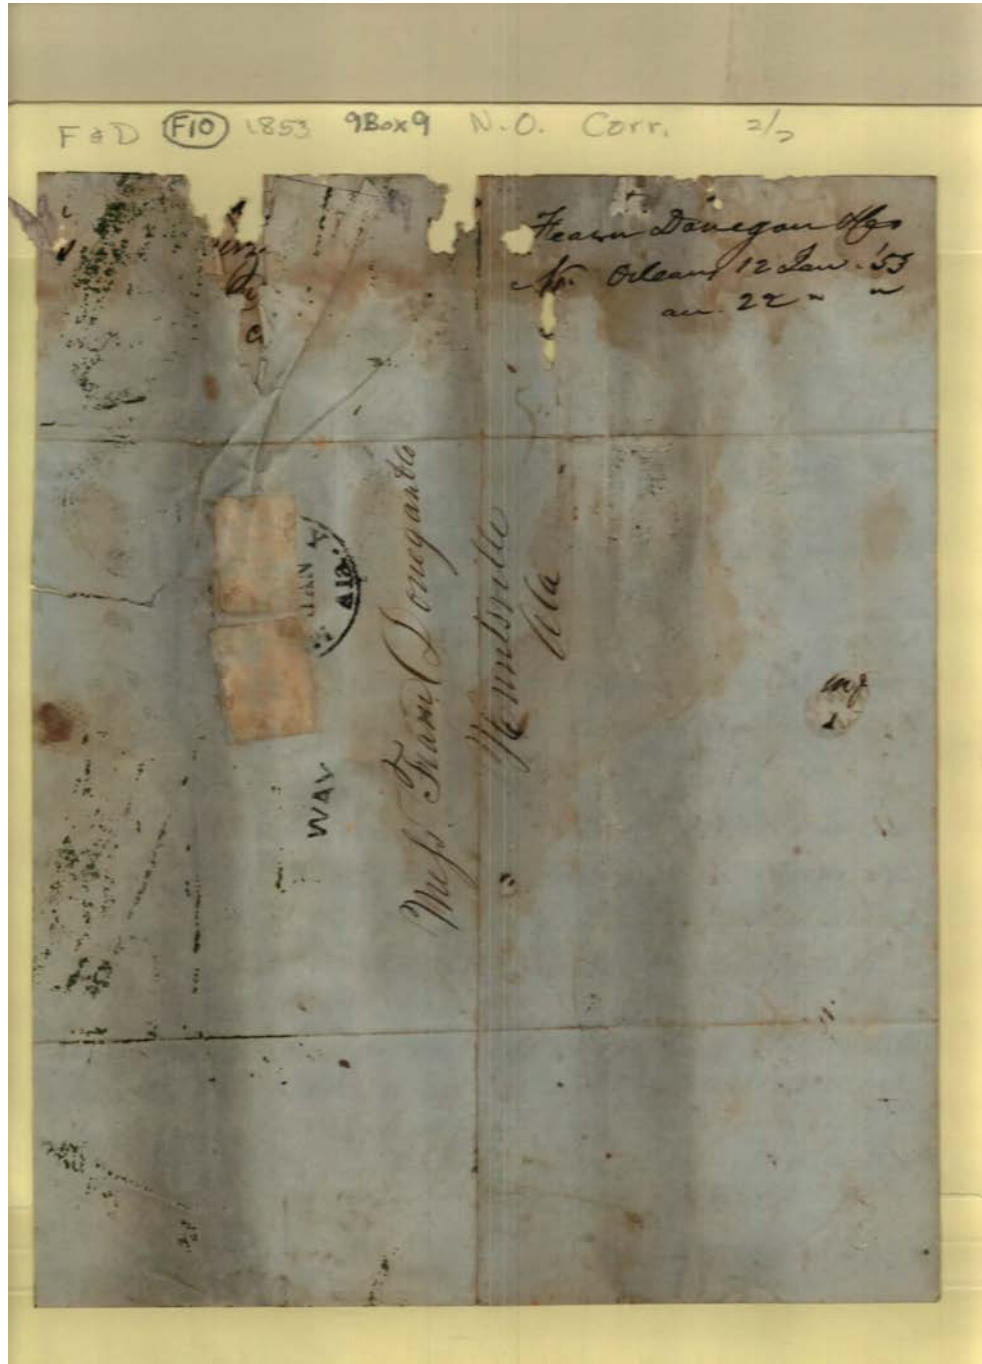 F & D F10 1853 9Box9 N.O. Corr. 2/2
Fearn Donegan &Co
N. Orleans 12 Jan. '53
an. 22 " "
JAN
Ala.
WAY
Mess. Fearn Donegan & Co
Huntsville
Ala